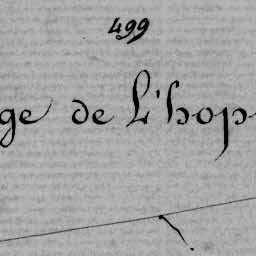 499
ge de L'hop